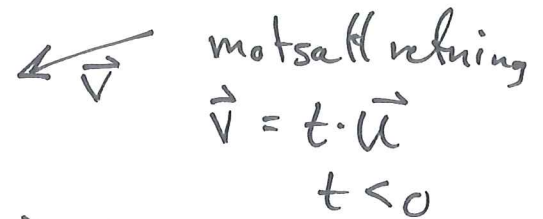 motsatt retning
v⃗
v⃗ = t·u⃗
t < 0